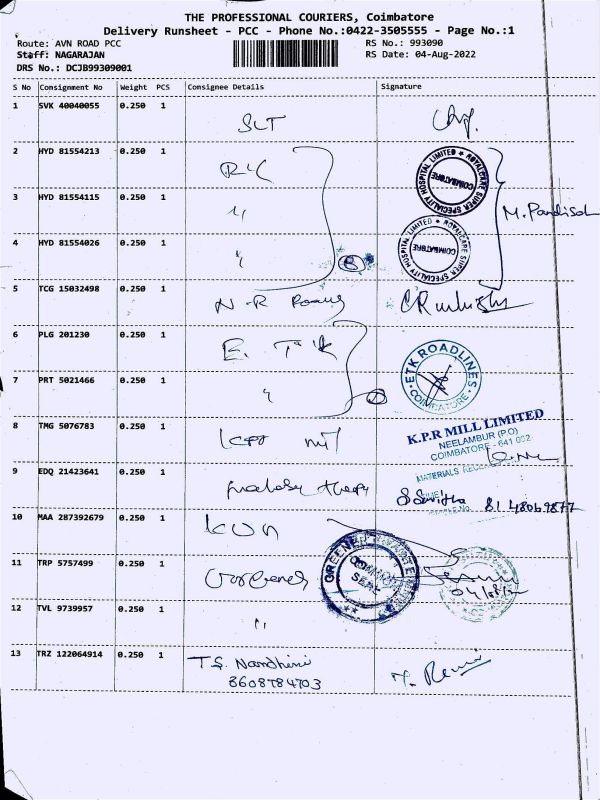 THE PROFESSIONAL COURIERS, Coimbatore
Delivery Runsheet - PCC - Phone No.:0422-3505555 - Page No.:1
Route: AVN ROAD PCC RS No.: 993090
Staff: NAGARAJAN RS Date: 04-Aug-2022
DRS No.: DCJB99309001
S No Consignment No Weight PCS Consignee Details Signature
1 SVK 40040055 0.250 1
2 HYD 81554213 0.250 1
ROYALCARE SUPER SPECIALITY HOSPITAL LIMITED COIMBATORE
3 HYD 81554115 0.250 1 "
4 HYD 81554026 0.250 1 "
ROYALCARE SUPER SPECIALITY HOSPITAL LIMITED COIMBATORE
5 TCG 15032498 0.250 1
6 PLG 201230 0.250 1
ETK ROADLINES COIMBATORE
7 PRT 5021466 0.250 1 "
8 TMG 5076783 0.250 1
K.P.R MILL LIMITED
NEELAMBUR (PO)
COIMBATORE - 641 062
MATERIALS
9 EDQ 21423641 0.250 1
10 MAA 287392679 0.250 1
11 TRP 5757499 0.250 1
12 TVL 9739957 0.250 1 "
13 TRZ 122064914 0.250 1 T.S. Nandhini
8608784703